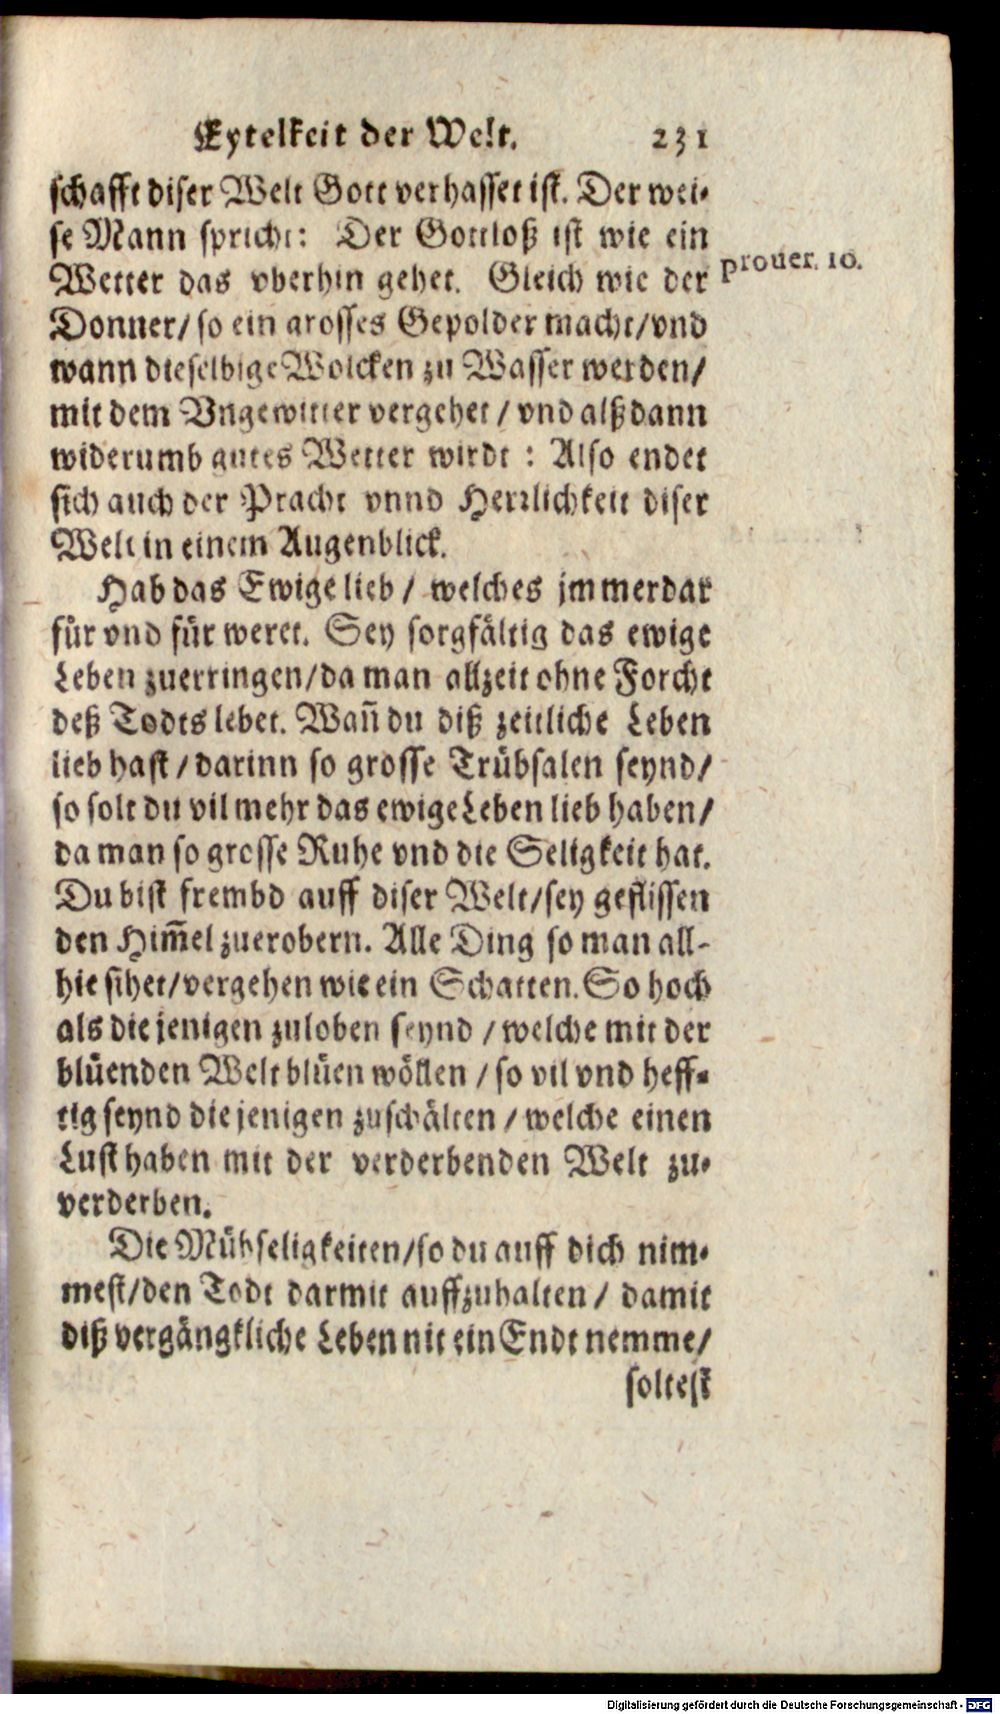 Eytelkeit der Welt. 231
schafft diser Welt Gott verhasset ist. Der wei-
se Mann spricht: Der Gottloß ist wie ein
Wetter das vberhin gehet. Gleich wie der
prouer. 10.
Donner/ so ein grosses Gepolder macht/ vnd
wann dieselbige Wolcken zu Wasser werden/
mit dem Vngewitter vergehet / vnd alßdann
widerumb gutes Wetter wirdt : Also endet
sich auch der Pracht vnnd Herrlichkeit diser
Welt in einem Augenblick.
Hab das Ewige lieb / welches jmmerdar
für vnd für weret. Sey sorgfältig das ewige
Leben zuerringen/ da man allzeit ohne Forcht
deß Todts lebet. Wañ du diß zeitliche Leben
lieb hast / darinn so grosse Trübsalen seynd/
so solt du vil mehr das ewige Leben lieb haben/
da man so grosse Ruhe vnd die Seligkeit hat.
Du bist frembd auff diser Welt/ sey geflissen
den Him̃el zuerobern. Alle Ding so man all-
hie sihet/ vergehen wie ein Schatten. So hoch
als die jenigen zuloben seynd / welche mit der
blüenden Welt blüen wöllen / so vil vnd heff-
tig seynd die jenigen zuschälten / welche einen
Lust haben mit der verderbenden Welt zu-
verderben.
Die Mühseligkeiten/ so du auff dich nim-
mest/ den Todt darmit auffzuhalten / damit
diß vergängkliche Leben nit ein Endt nemme/
soltest
Digitalisierung gefördert durch die Deutsche Forschungsgemeinschaft - DFG